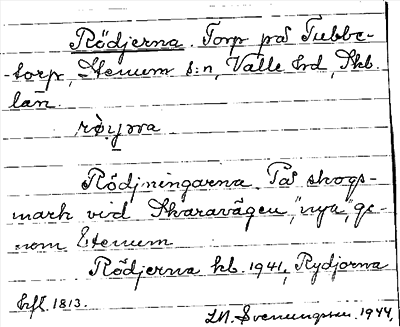 Rödjerna. Torp på Tubbe-
torp, Stenum s:n, Valle hd, Skb.
län.
Rödjningarna. På skogs-
mark vid Skaravägen, "nya", ge-
nom Stenum
Rödjerna kb. 1941, Rydjorna
hfl. 1813.
Svenungsson. 1944.